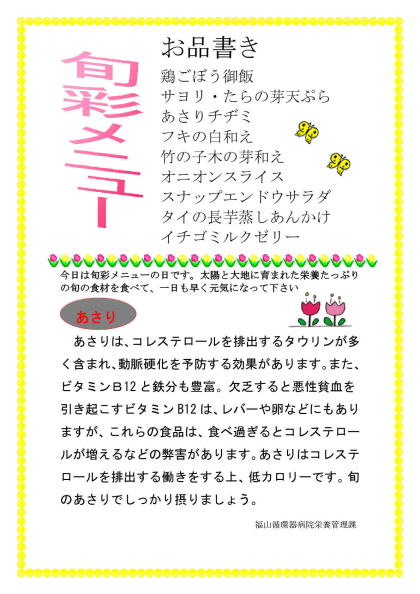 旬彩メニュー
お品書き
鶏ごぼう御飯
サヨリ・たらの芽天ぷら
あさりチヂミ
フキの白和え
竹の子木の芽和え
オニオンスライス
スナップエンドウサラダ
タイの長芋蒸しあんかけ
イチゴミルクゼリー
今日は旬彩メニューの日です。太陽と大地に育まれた栄養たっぷり
の旬の食材を食べて、一日も早く元気になって下さい
あさり
あさりは、コレステロールを排出するタウリンが多
く含まれ、動脈硬化を予防する効果があります。また、
ビタミンＢ12と鉄分も豊富。欠乏すると悪性貧血を
引き起こすビタミンB12は、レバーや卵などにもあり
ますが、これらの食品は、食べ過ぎるとコレステロー
ルが増えるなどの弊害があります。あさりはコレステ
ロールを排出する働きをする上、低カロリーです。旬
のあさりでしっかり摂りましょう。
福山循環器病院栄養管理課